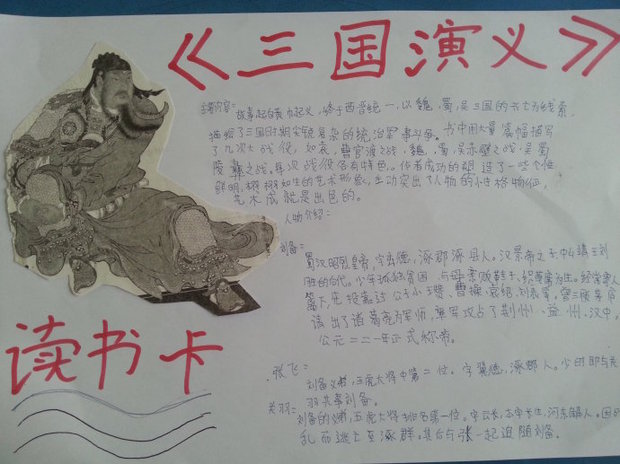 《三国演义》
主要内容:故事起自黄巾起义,终于西晋统一,以魏、蜀、吴三国的兴亡为线索,
描写了三国时期尖锐复杂的统治军事斗争。书中用大量篇幅描写
了几次大战役,如袁、曹官渡之战,魏、蜀、吴赤壁之战,吴蜀
陵之战,每次战役各有特色。作者成功的塑造了一些个性
鲜明,栩栩如生的艺术形象,生动突出了人物的性格特征,
艺术成就是出色的。
人物介绍:
刘备:
蜀汉昭烈皇帝,字玄德,涿郡涿县人。汉景帝之子中山靖王刘
胜的后代。少年孤独贫困,与母亲贩鞋子、织草席为生。经常寄人
篱下,先投靠过公孙瓒、曹操、袁绍、刘表等。曾三顾茅庐
请出了诸葛亮为军师,率军攻占了荆州、益州、汉中。
公元二二一年正式称帝。
张飞:
刘备义弟,五虎大将中第二位。字翼德,涿郡人。少时即与关
羽共事刘备。
关羽:
刘备的义弟,五虎大将排名第一位。字云长,本字长生,河东解人。因
乱而逃亡至涿群。其后与张一起追随刘备。
读书卡